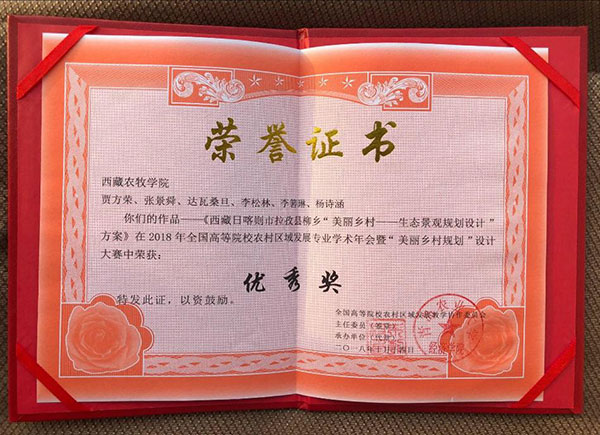 荣誉证书
西藏农牧学院
贾方荣、张景舜、达瓦桑旦、李松林、李箬琳、杨诗涵
你们的作品——《西藏日喀则市拉孜县柳乡“美丽乡村——生态景观规划设计”
方案》在2018年全国高等院校农村区域发展专业学术年会暨“美丽乡村规划”设计
大赛中荣获：
优秀奖
特发此证，以资鼓励。
全国高等院校农村区域发展教学协作委员会
主任委员（签章）
承办单位（代章）
二〇一八年十月